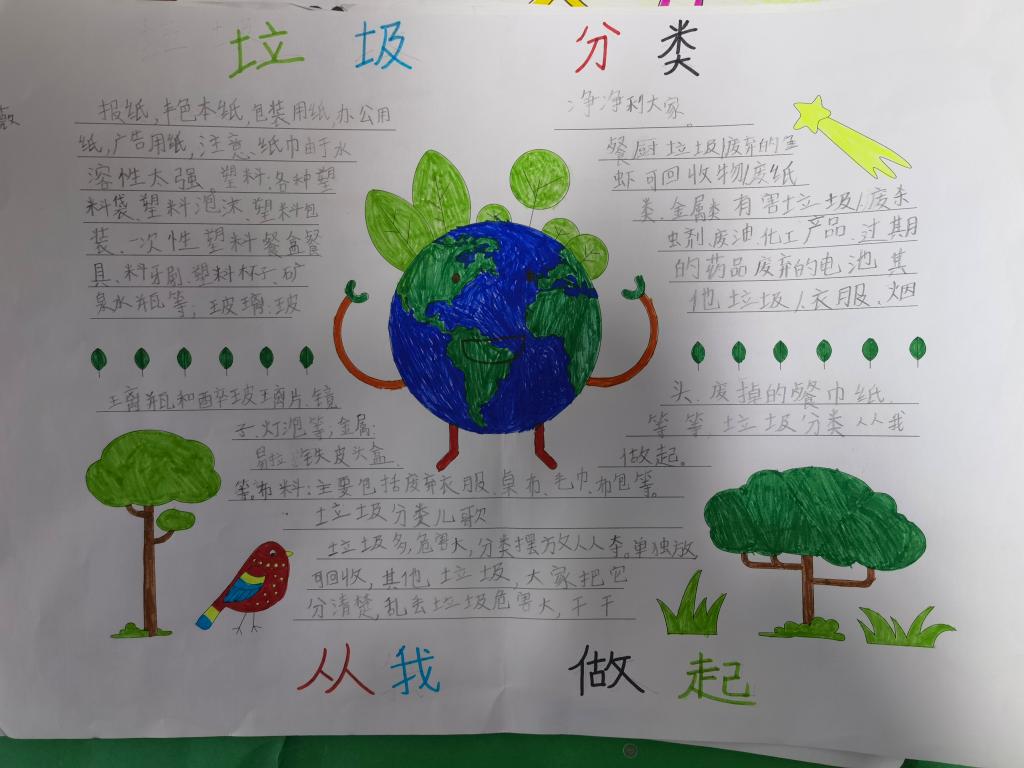 垃圾分类
报纸,丰色本纸,包装用纸,办公用
纸,广告用纸,注意纸巾由于水
溶性太强。塑料:各种塑
料袋、塑料泡沫、塑料包
装、一次性塑料餐盒餐
具、料牙刷、塑料杯子、矿
泉水瓶等;玻璃:玻
璃瓶和碎玻璃片、镜
子、灯泡等;金属:
易拉 铁皮头盒、
等。布料:主要包括废弃衣服、桌布、毛巾、布包等。
垃圾分类儿歌
垃圾多,危害大,分类摆放人人夸。单独放,
可回收,其他垃圾,大家把它
分清楚,扎丢垃圾危害大,干干
净净利大家。
餐厨垃圾废弃的鱼
虾可回收物废纸
类、金属类有害垃圾废杀
虫剂、废油、化工产品、过期
的药品废弃的电池其
他垃圾衣服、烟
头、废掉的餐巾纸
等等,垃圾分类从我
做起。
从我做起